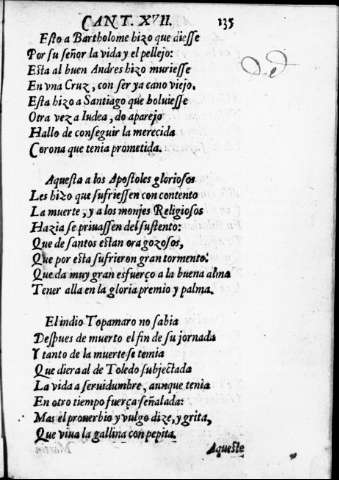 CANT. XVII. 135
Esto a Bartholome hizo que diesse
Por su señor la vida y el pellejo:
Esta al buen Andres hizo muriesse
En vna Cruz, con ser ya cano viejo.
Esta hizo a Santiago que boluiesse
Otra vez a Iudea, do aparejo
Hallo de conseguir la merecida
Corona que tenia prometida.
Aquesta a los Apostoles gloriosos
Les hizo que sufriessen con contento
La muerte, y a los monjes Religiosos
Hazia se priuassen del sustento:
Que de santos estan ora gozosos,
Que por esta sufrieron gran tormento:
Que da muy gran esfuerço a la buena alma
Tener alla en la gloria premio y palma.
El indio Topamaro no sabia
Despues de muerto el fin de su jornada
Y tanto de la muerte se temia
Que diera al de Toledo subjectada
La vida a seruidumbre, aunque tenia
En otro tiempo fuerça señalada:
Mas el prouerbio y vulgo dize, y grita,
Que viua la gallina con pepita.
Aqueste